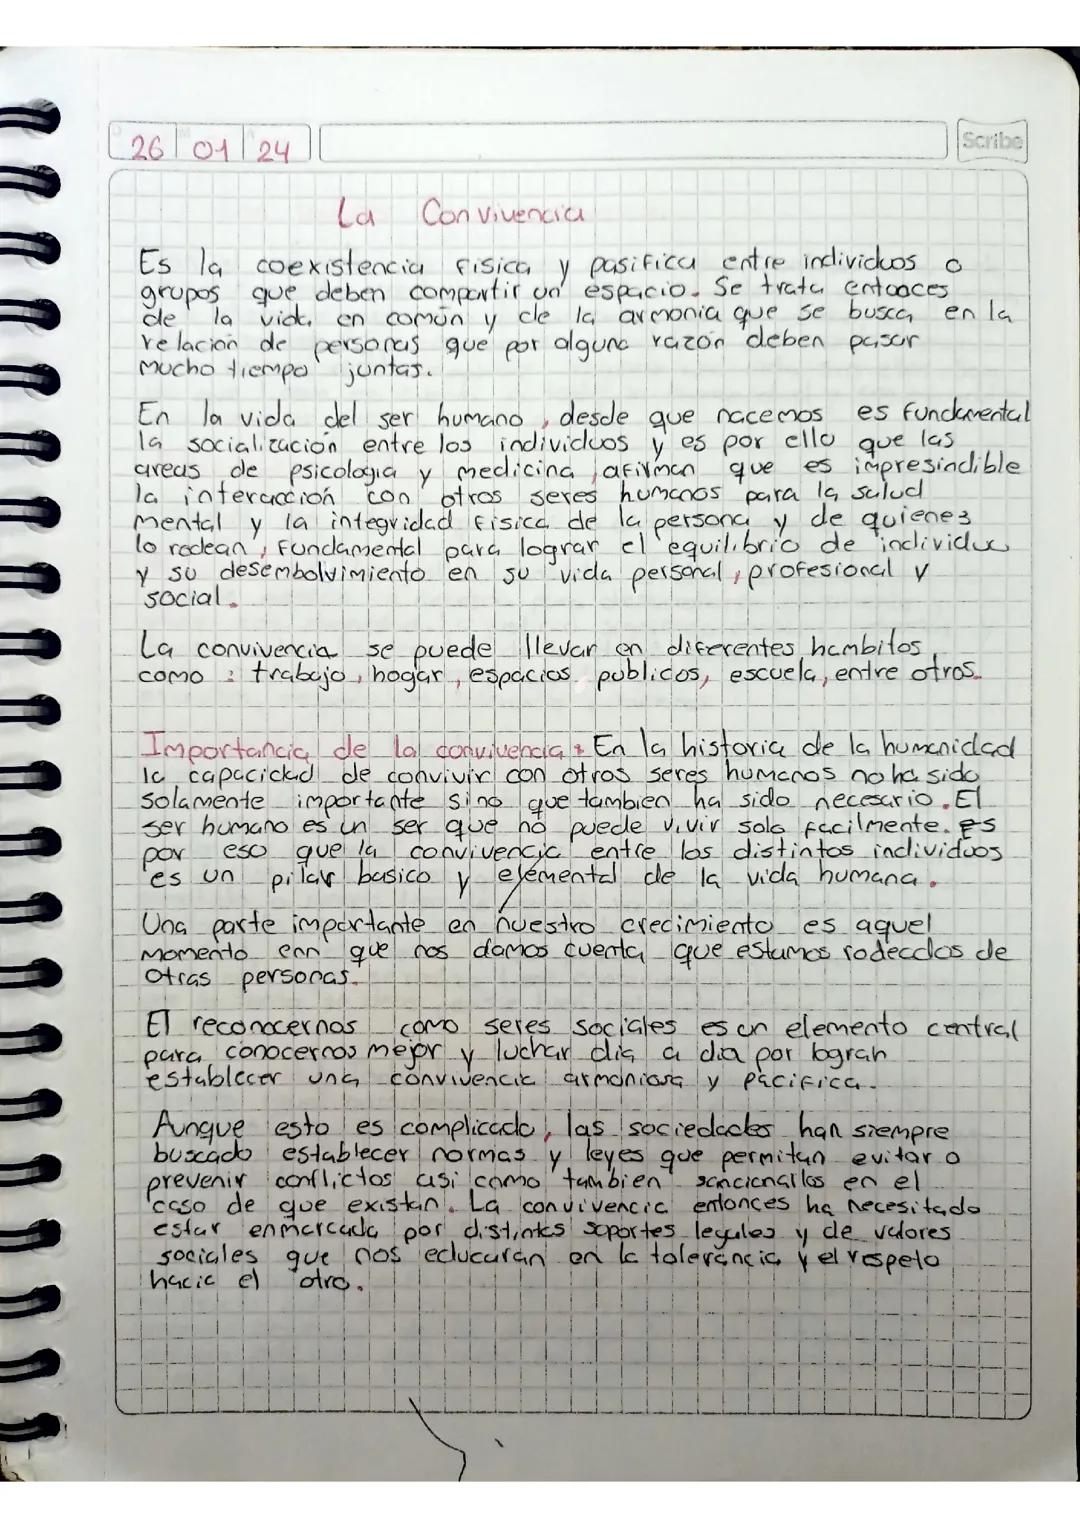 26 01 24
Scribe
La Convivencia
Es la coexistencia fisica y pasifica entre individuos o
grupos que deben compartir un espacio. Se trata entonces
de la vida en común y de la armonia que se busca en la
relación de personas que por alguna razón deben pasar
mucho tiempo juntas.
En la vida del ser humano, desde que nacemos es fundamental
la socialización entre los individuos y es por ello que las
areas de psicologia y medicina, afirman que es impresindible
la interacción con otros seres humanos para la salud
mental y la integridad fisica de la persona y de quienes
lo rodean, fundamental para lograr el equilibrio de individuo
y su desembolvimiento en su vida personal, profesional y
social.
La convivencia se puede llevar en diferentes hambitos,
como : trabajo, hogar, espacios publicos, escuela, entre otros.
Importancia de la convivencia: En la historia de la humanidad
la capacidad de convivir con otros seres humanos no ha sido
solamente importante sino que tambien ha sido necesario. El
ser humano es un ser que no puede vivir solo facilmente. es
por eso que la convivencia entre los distintos individuos
es un pilar basico y elemental de la vida humana.
Una parte importante en nuestro crecimiento es aquel
momento enn que nos damos cuenta que estamos rodeados de
otras personas.
El reconocernos como seres sociales es un elemento central
para conocernos mejor y luchar dia a dia por lograr
establecer una convivencia armoniosa y pacifica.
Aunque esto es complicado, las sociedades han siempre
buscado establecer normas y leyes que permitan evitar o
prevenir conflictos asi como tambien sancionarlos en el
caso de que existan. La convivencia entonces ha necesitado
estar enmarcada por distintos soportes legales y de valores
sociales que nos educaran en la tolerancia y el respeto
hacia el otro.